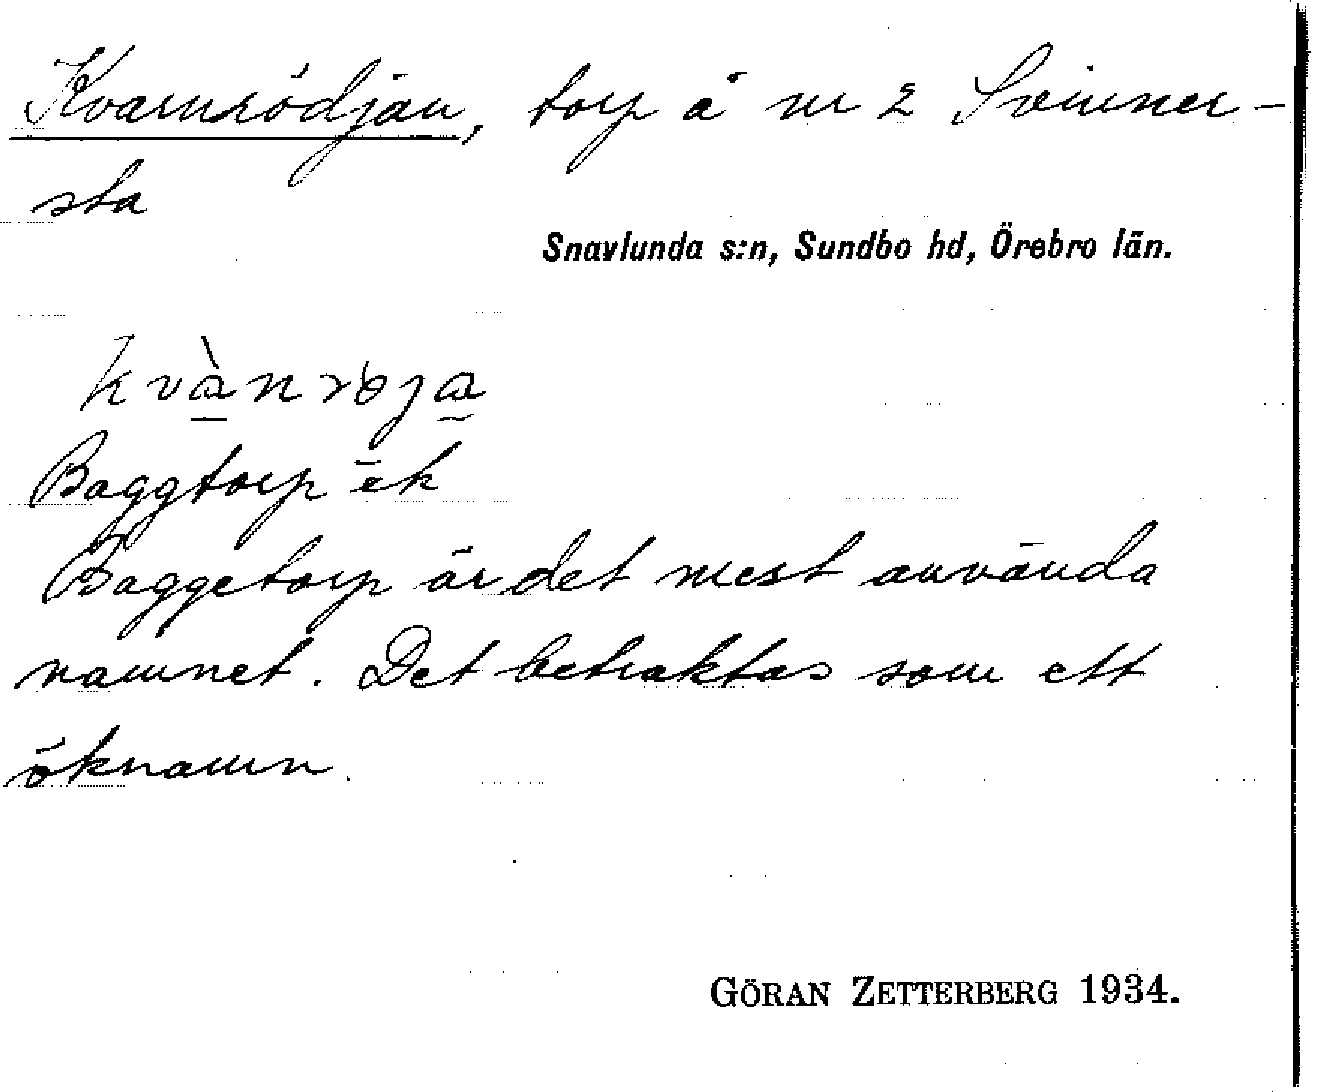 Kvarnrödjan, torp å nr 2 Svinner-
sta
Snavlunda s:n, Sundbo hd, Örebro län.
kvànrɵja
Baggtorp ek
Baggetorp är det mest använda
namnet. Det betraktas som ett
öknamn.
GÖRAN ZETTERBERG 1934.